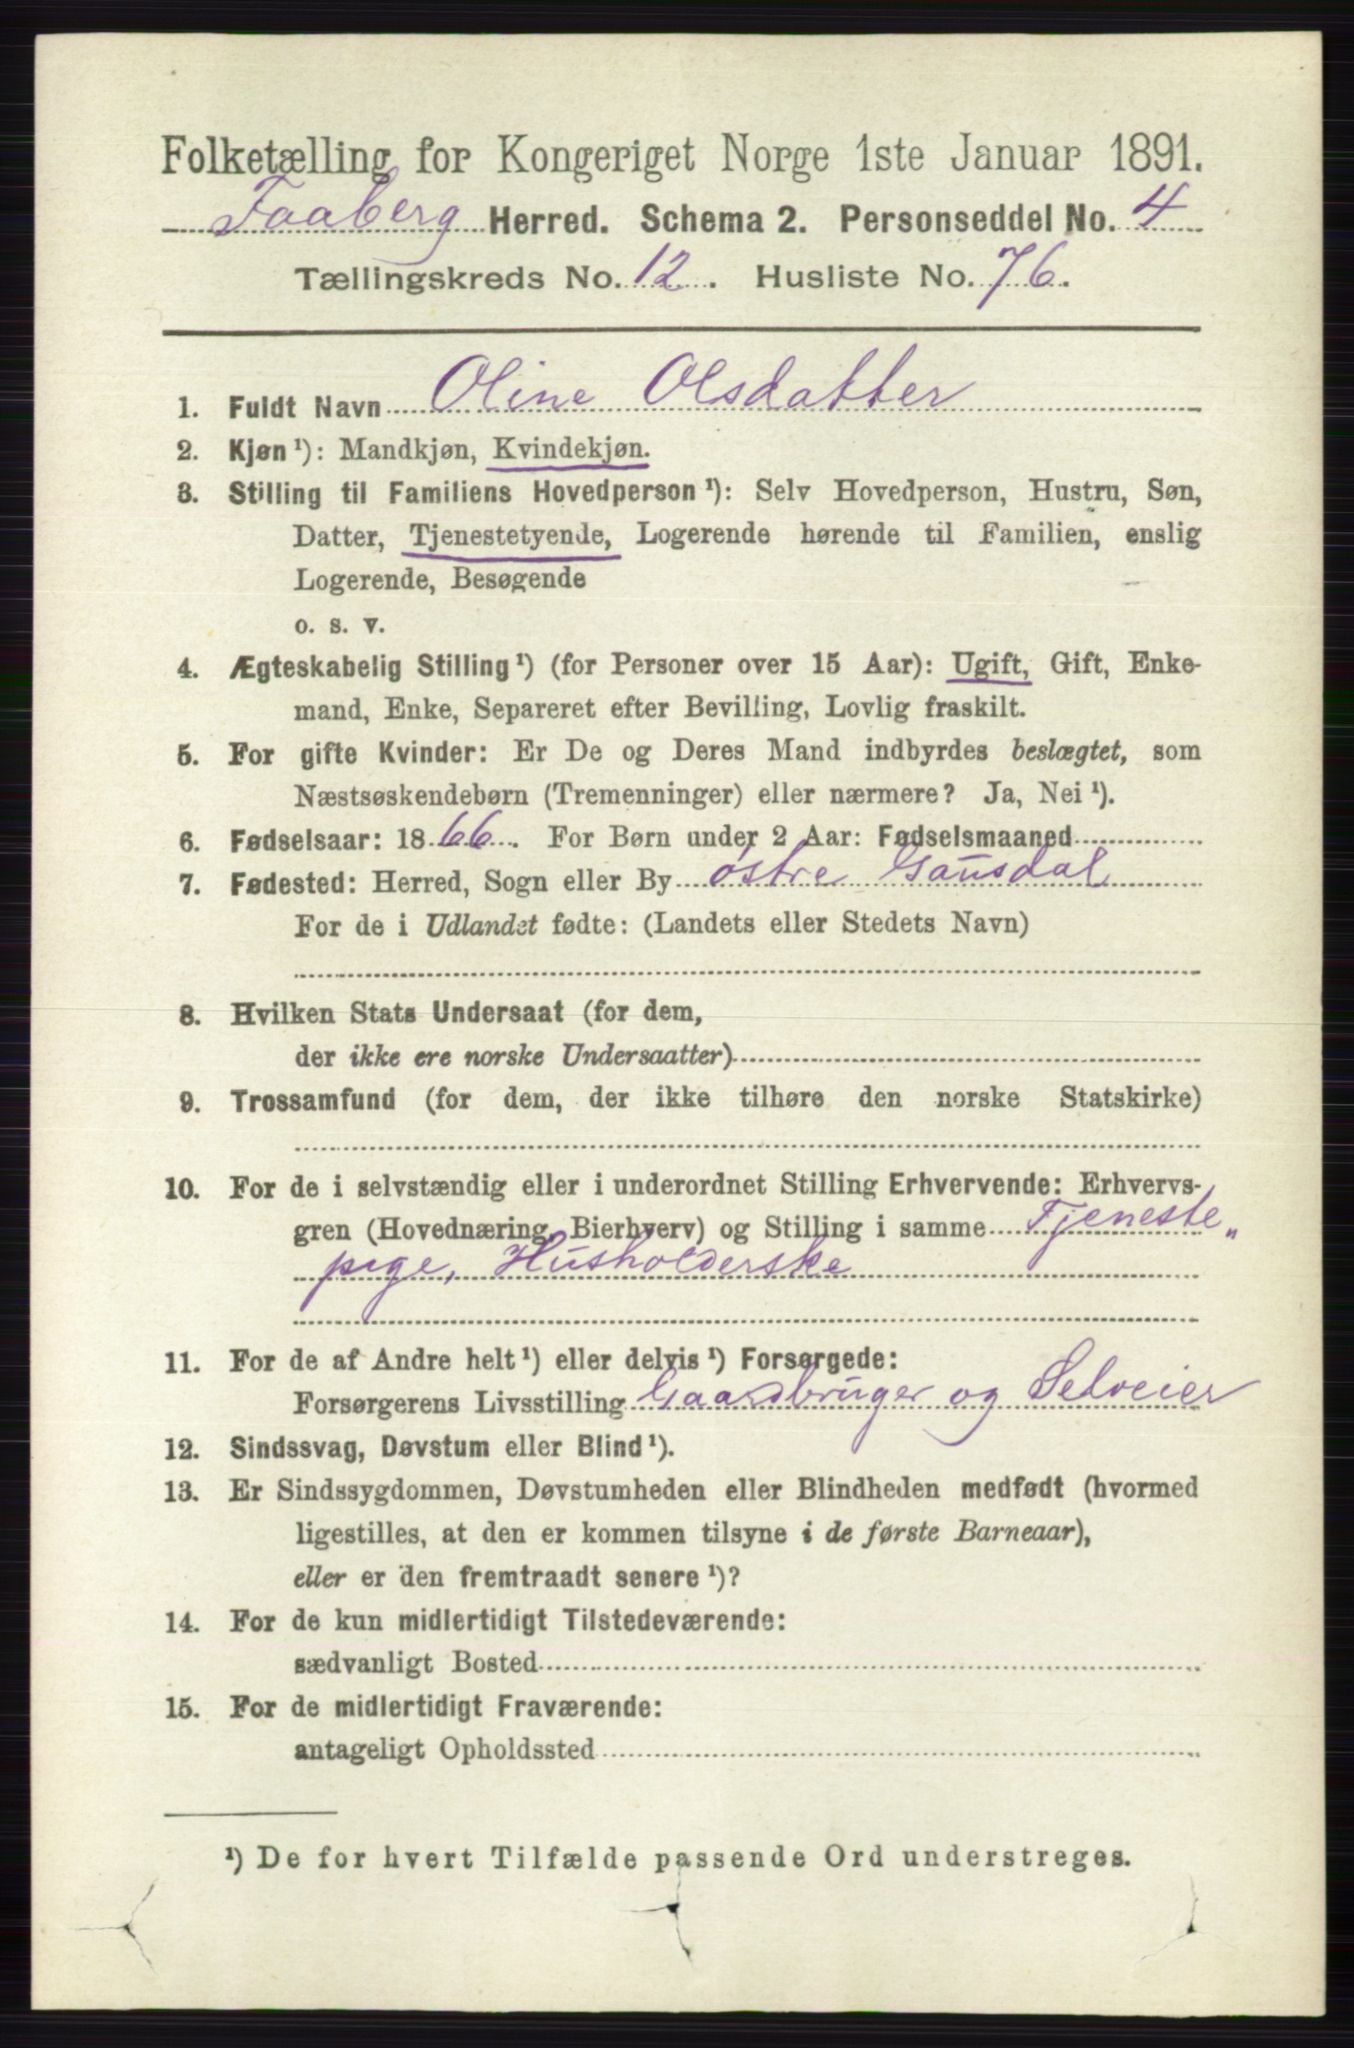 Folketælling for Kongeriget Norge 1ste Januar 1891.
Faaberg Herred. Schema 2. Personseddel No. 4
Tællingskreds No. 12. Husliste No. 76.
1. Fuldt Navn Oline Olsdatter
2. Kjøn ¹): Mandkjøn, Kvindekjøn.
3. Stilling til Familiens Hovedperson ¹): Selv Hovedperson, Hustru, Søn,
Datter, Tjenestetyende, Logerende hørende til Familien, enslig
Logerende, Besøgende
o. s. v.
4. Ægteskabelig Stilling ¹) (for Personer over 15 Aar): Ugift, Gift, Enke-
mand, Enke, Separeret efter Bevilling, Lovlig fraskilt.
5. For gifte Kvinder: Er De og Deres Mand indbyrdes beslægtet, som
Næstsøskendebørn (Tremenninger) eller nærmere? Ja, Nei ¹).
6. Fødselsaar: 1866. For Børn under 2 Aar: Fødselsmaaned
7. Fødested: Herred, Sogn eller By østre Gausdal
For de i Udlandet fødte: (Landets eller Stedets Navn)
8. Hvilken Stats Undersaat (for dem,
der ikke ere norske Undersaatter)
9. Trossamfund (for dem, der ikke tilhøre den norske Statskirke)
10. For de i selvstændig eller i underordnet Stilling Erhvervende: Erhvervs-
gren (Hovednæring, Bierhverv) og Stilling i samme Tjeneste„
pige, Husholderske
11. For de af Andre helt ¹) eller delvis ¹) Forsørgede:
Forsørgerens Livsstilling Gaardbruger og Selveier
12. Sindssvag, Døvstum eller Blind ¹).
13. Er Sindssygdommen, Døvstumheden eller Blindheden medfødt (hvormed
ligestilles, at den er kommen tilsyne i de første Barneaar),
eller er den fremtraadt senere ¹)?
14. For de kun midlertidigt Tilstedeværende:
sædvanligt Bosted
15. For de midlertidigt Fraværende:
antageligt Opholdssted
¹) De for hvert Tilfælde passende Ord understreges.